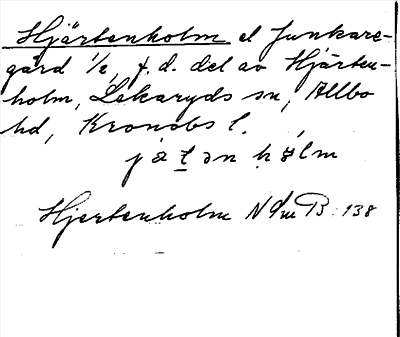 Hjärtenholm el Junkare-
gård 1/2, f.d. del av Hjärten-
holm, Lekaryds sn, Allbo
hd, Kronobs l.
Hjertenholm N Sm B: 138